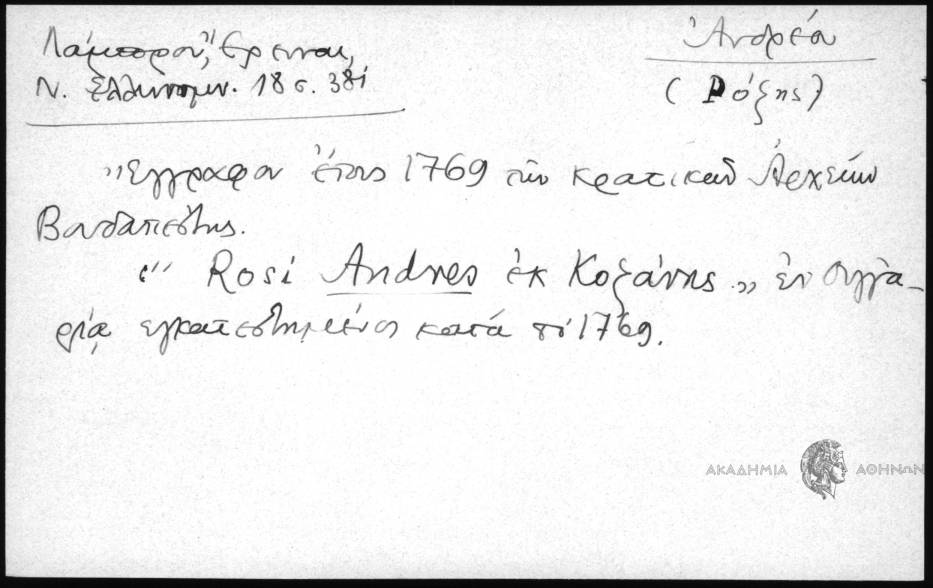 Λάμπρου, Ἔρευναι,
Ν. Ἑλληνομν. 18 σ. 381
Ἀνδρέου
(Ρόζης)
"Έγγραφον ἔτους 1769 τῶν κρατικῶν Ἀρχείων
Βουδαπέστης.
“ Rosi Andres ἐκ Κοζάνης „ ἐν Οὑγγα-
ρίᾳ ἐγκατεστημένος κατά τό 1769.
ΑΚΑΔΗΜΙΑ ΑΘΗΝΩΝ